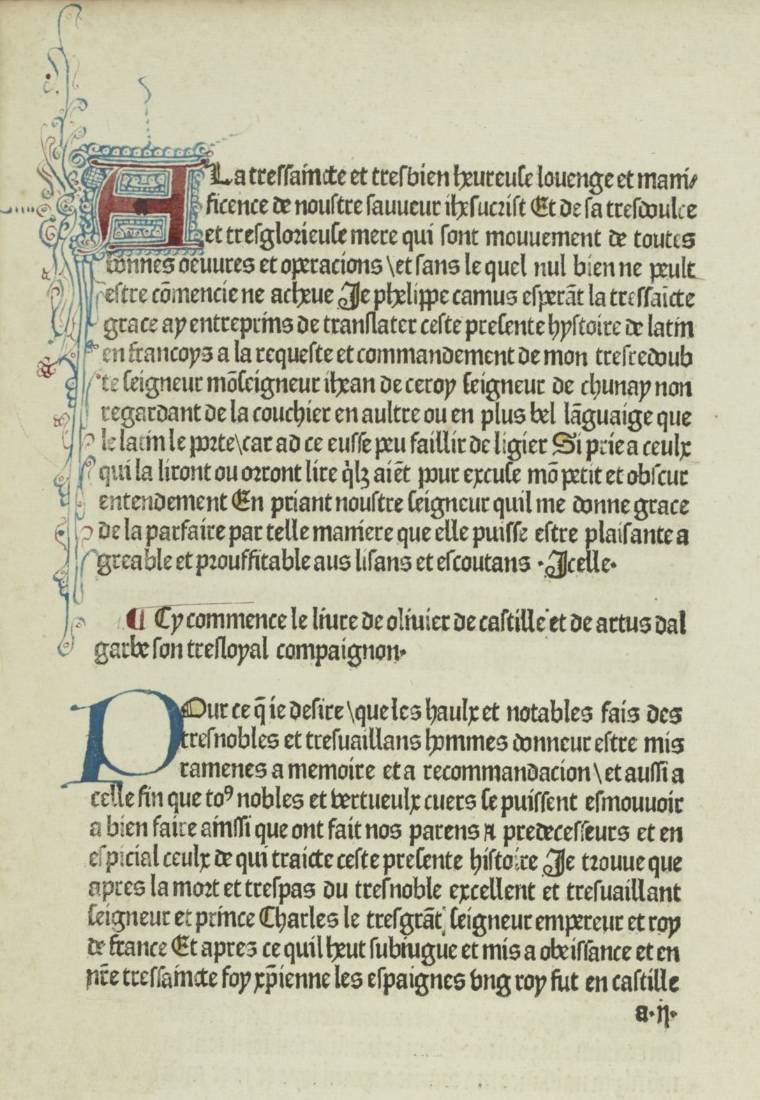 A La tressaincte et tresbien heureuse louenge et mani/
ficence de noustre sauueur ihesucrist Et de sa tresdoulce
et tresglorieuse mere qui sont mouuement de toutes
bonnes oeuures et operacions \ et sans le quel nul bien ne peult
estre cõmencie ne acheue Je phelippe camus esperãt la tressaĩcte
grace ay entreprins de translater ceste presente hystoire de latin
en francoys a la requeste et commandement de mon tresredoub
te seigneur mõseigneur ihean de ceroy seigneur de chunay non
regardant de la couchier en aultre ou en plus bel lãguaige que
le latin le porte \ car ad ce eusse peu faillir de ligier Si prie a ceulx
qui la liront ou orront lire q̃lz aiẽt pour excuse mõ petit et obscur
entendement En priant noustre seigneur quil me donne grace
de la parfaire par telle maniere que elle puisse estre plaisante a
greable et prouffitable aus lisans et escoutans · Jcelle·
¶ Cy commence le liure de oliuier de castille et de artus dal
garbe son tresloyal compaignon·
POur ce q̃ ie desire \ que les haulx et notables fais des
tresnobles et tresuaillans hommes donneur estre mis
ramenes a memoire et a recommandacion \ et aussi a
celle fin que toꝰ nobles et vertueulx cuers se puissent esmouuoir
a bien faire ainssi que ont fait nos parens ⁊ predecesseurs et en
espicial ceulx de qui traicte ceste presente histoire Je trouue que
apres la mort et trespas du tresnoble excellent et tresuaillant
seigneur et prince Charles le tresgrãt seigneur empereur et roy
de france Et apres ce quil heut subiugue et mis a obeissance et en
nr̃e tressaincte foy xp̃ienne les espaignes vng roy fut en castille
a·ij·